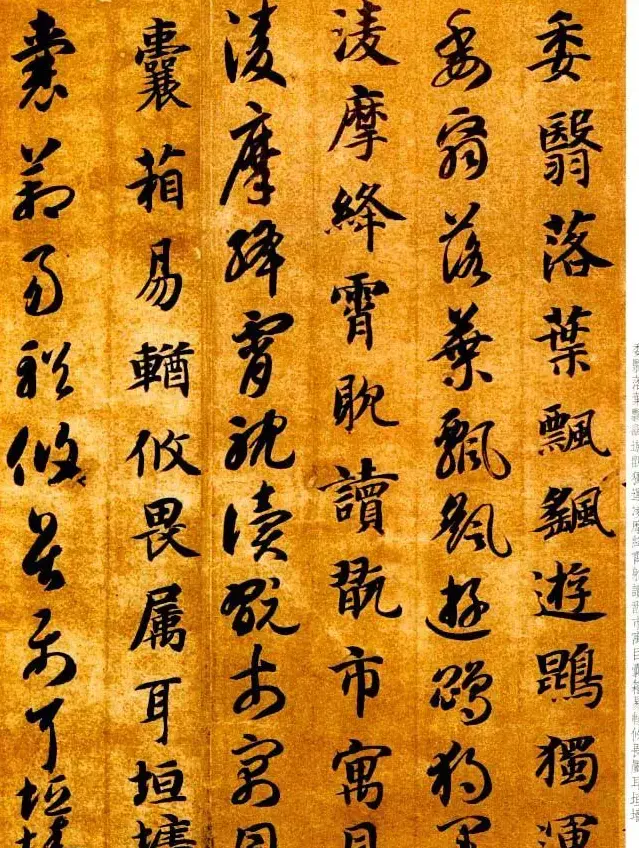 委翳落葉飄颻遊鵾獨運凌摩絳霄耽讀翫市寓目囊箱易輶攸畏屬耳垣墻
委翳落葉飄颻遊鵾獨運
委翳落葉飄颻遊鵾獨運
淩摩絳霄耽讀翫市寓目
淩摩絳霄耽讀翫市寓目
囊箱易輶攸畏属耳垣墻
囊箱易輶攸畏属耳垣墻